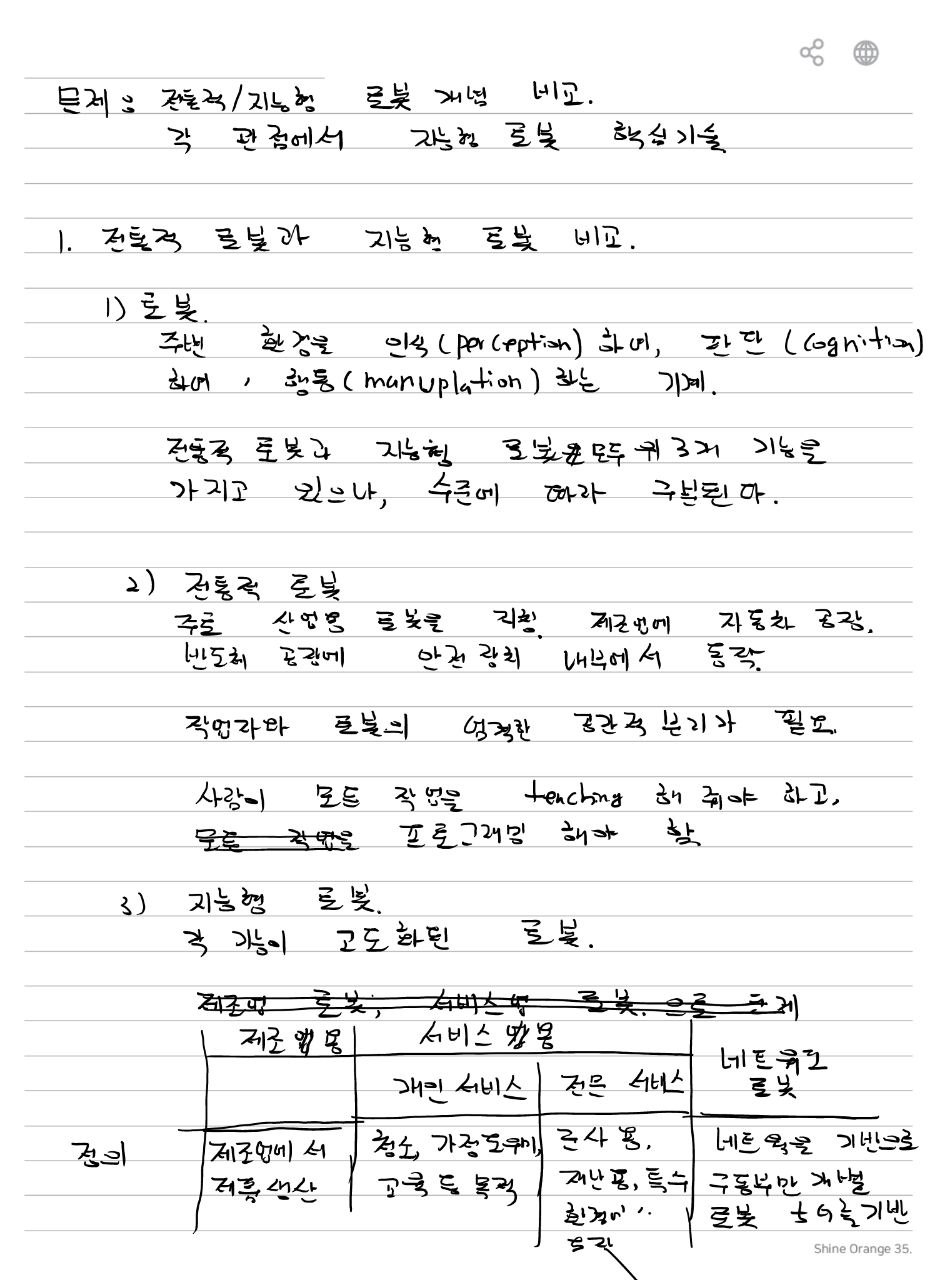 문제 : 전통적/지능형 로봇 개념 비교.
각 관점에서 지능형 로봇 핵심기술
1. 전통적 로봇과 지능형 로봇 비교.
1) 로봇.
주변 환경을 인식(perception)하여, 판단(cognition)
하여, 행동(manuplation)하는 기계.
전통적 로봇과 지능형 로봇은 모두 위 3개 기능을
가지고 있으나, 수준에 따라 구분된다.
2) 전통적 로봇
주로 산업용 로봇을 지칭. 제조업에 자동화 공장.
반도체 공장에 안전 장치 내부에서 동작.
작업자와 로봇의 엄격한 공간적 분리가 필요.
사람이 모든 작업을 teaching 해 줘야 하고,
모든 작업을 프로그래밍 해야 함.
3) 지능형 로봇.
각 기능이 고도화된 로봇.
제조업 로봇, 서비스업 로봇.으로 단계
제조업용 서비스업용 네트워크 로봇
개인 서비스 전문 서비스
정의 제조업에서 청소, 가정도우미, 군사용, 네트웍을 기반으로
제품생산 교육 등 목적 재난용, 특수 구동부만 개별
환경에.. 로봇 기반
동작
Shine Orange 35.